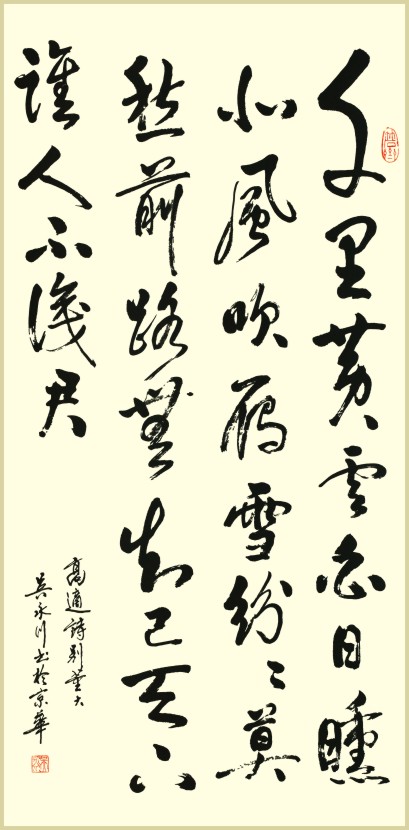 千里黄雲白日曛
北風吹雁雪紛〻莫
愁前路無知己天下
誰人不識君
高適詩别董大
吴永川书於京華